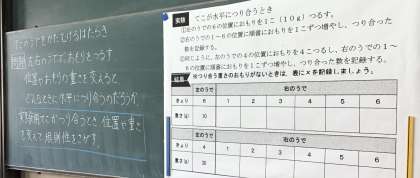 てこのうでをかたむけるはたらき
左右のうでに、おもりをつるす
位置やおもりの重さを変えると
どんなときに水平につり合うのだろうか
実験用てこがつり合うとき、位置や重さ
を変えて規則性をさがす。
実験 てこが水平につり合うとき
①左のうでの6の位置におもりを1こ(10g)つるす。
②右のうでの1~6の位置に順番におもりを1こずつ増やし、つり合った
数を記録する。
③同じように、左のうでの4の位置におもりを4こつるし、右のうでの1~
6の位置に順番におもりを1こずつ増やし、つり合った数を記録する。
結果 ※つり合う重さのおもりがないときは、表に×を記録しましょう。
左のうで 右のうで
きょり 6 1 2 3 4 5 6
重さ(g) 10
左のうで 右のうで
きょり 4 1 2 3 4 5 6
重さ(g)